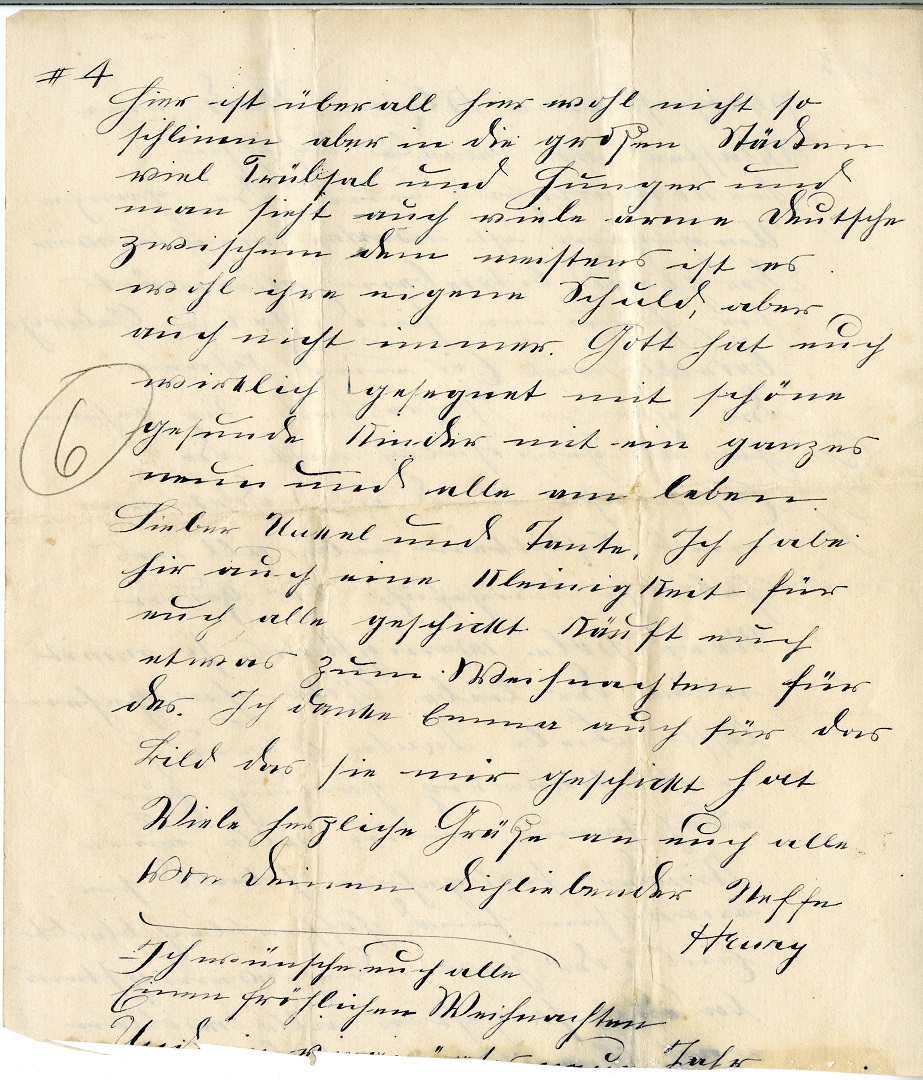 # 4
Hier ist überall hier wohl nicht so
schlimm aber in die großen Städten
viel Trübsal und Hunger und
man sieht auch viele arme Deutsche
zwischen dem meistens ist es
wohl ihre eigene Schuld, aber
auch nicht immer. Gott hat euch
wirklich gesegnet mit schöne
gesunde Kinder mit ein ganzes
neun und alle am leben
6
Lieber Unkel und Tante, Ich habe
hir auch eine Kleinigkeit für
euch alle geschickt Käuft euch
etwas zum Weihnachten für
das. Ich danke Emma auch für das
Bild das sie mir geschickt hat
Viele herzliche Grüße an euch alle
Von Deinen dichliebender Neffe
Henry
Ich wünsche euch alle
Einen fröhlichen Weihnachten
Und ein neues Jahr